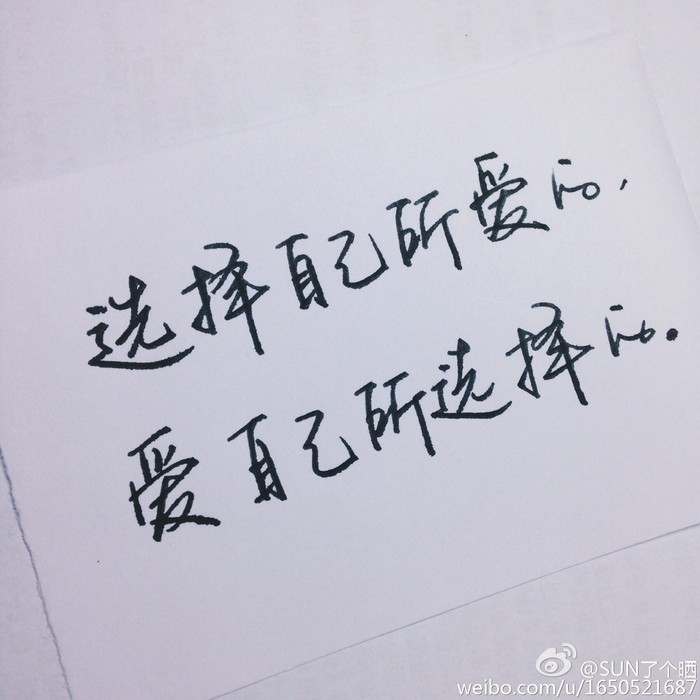 选择自己所爱的,
爱自己所选择的.
@SUN了个晒
weibo.com/u/1650521687